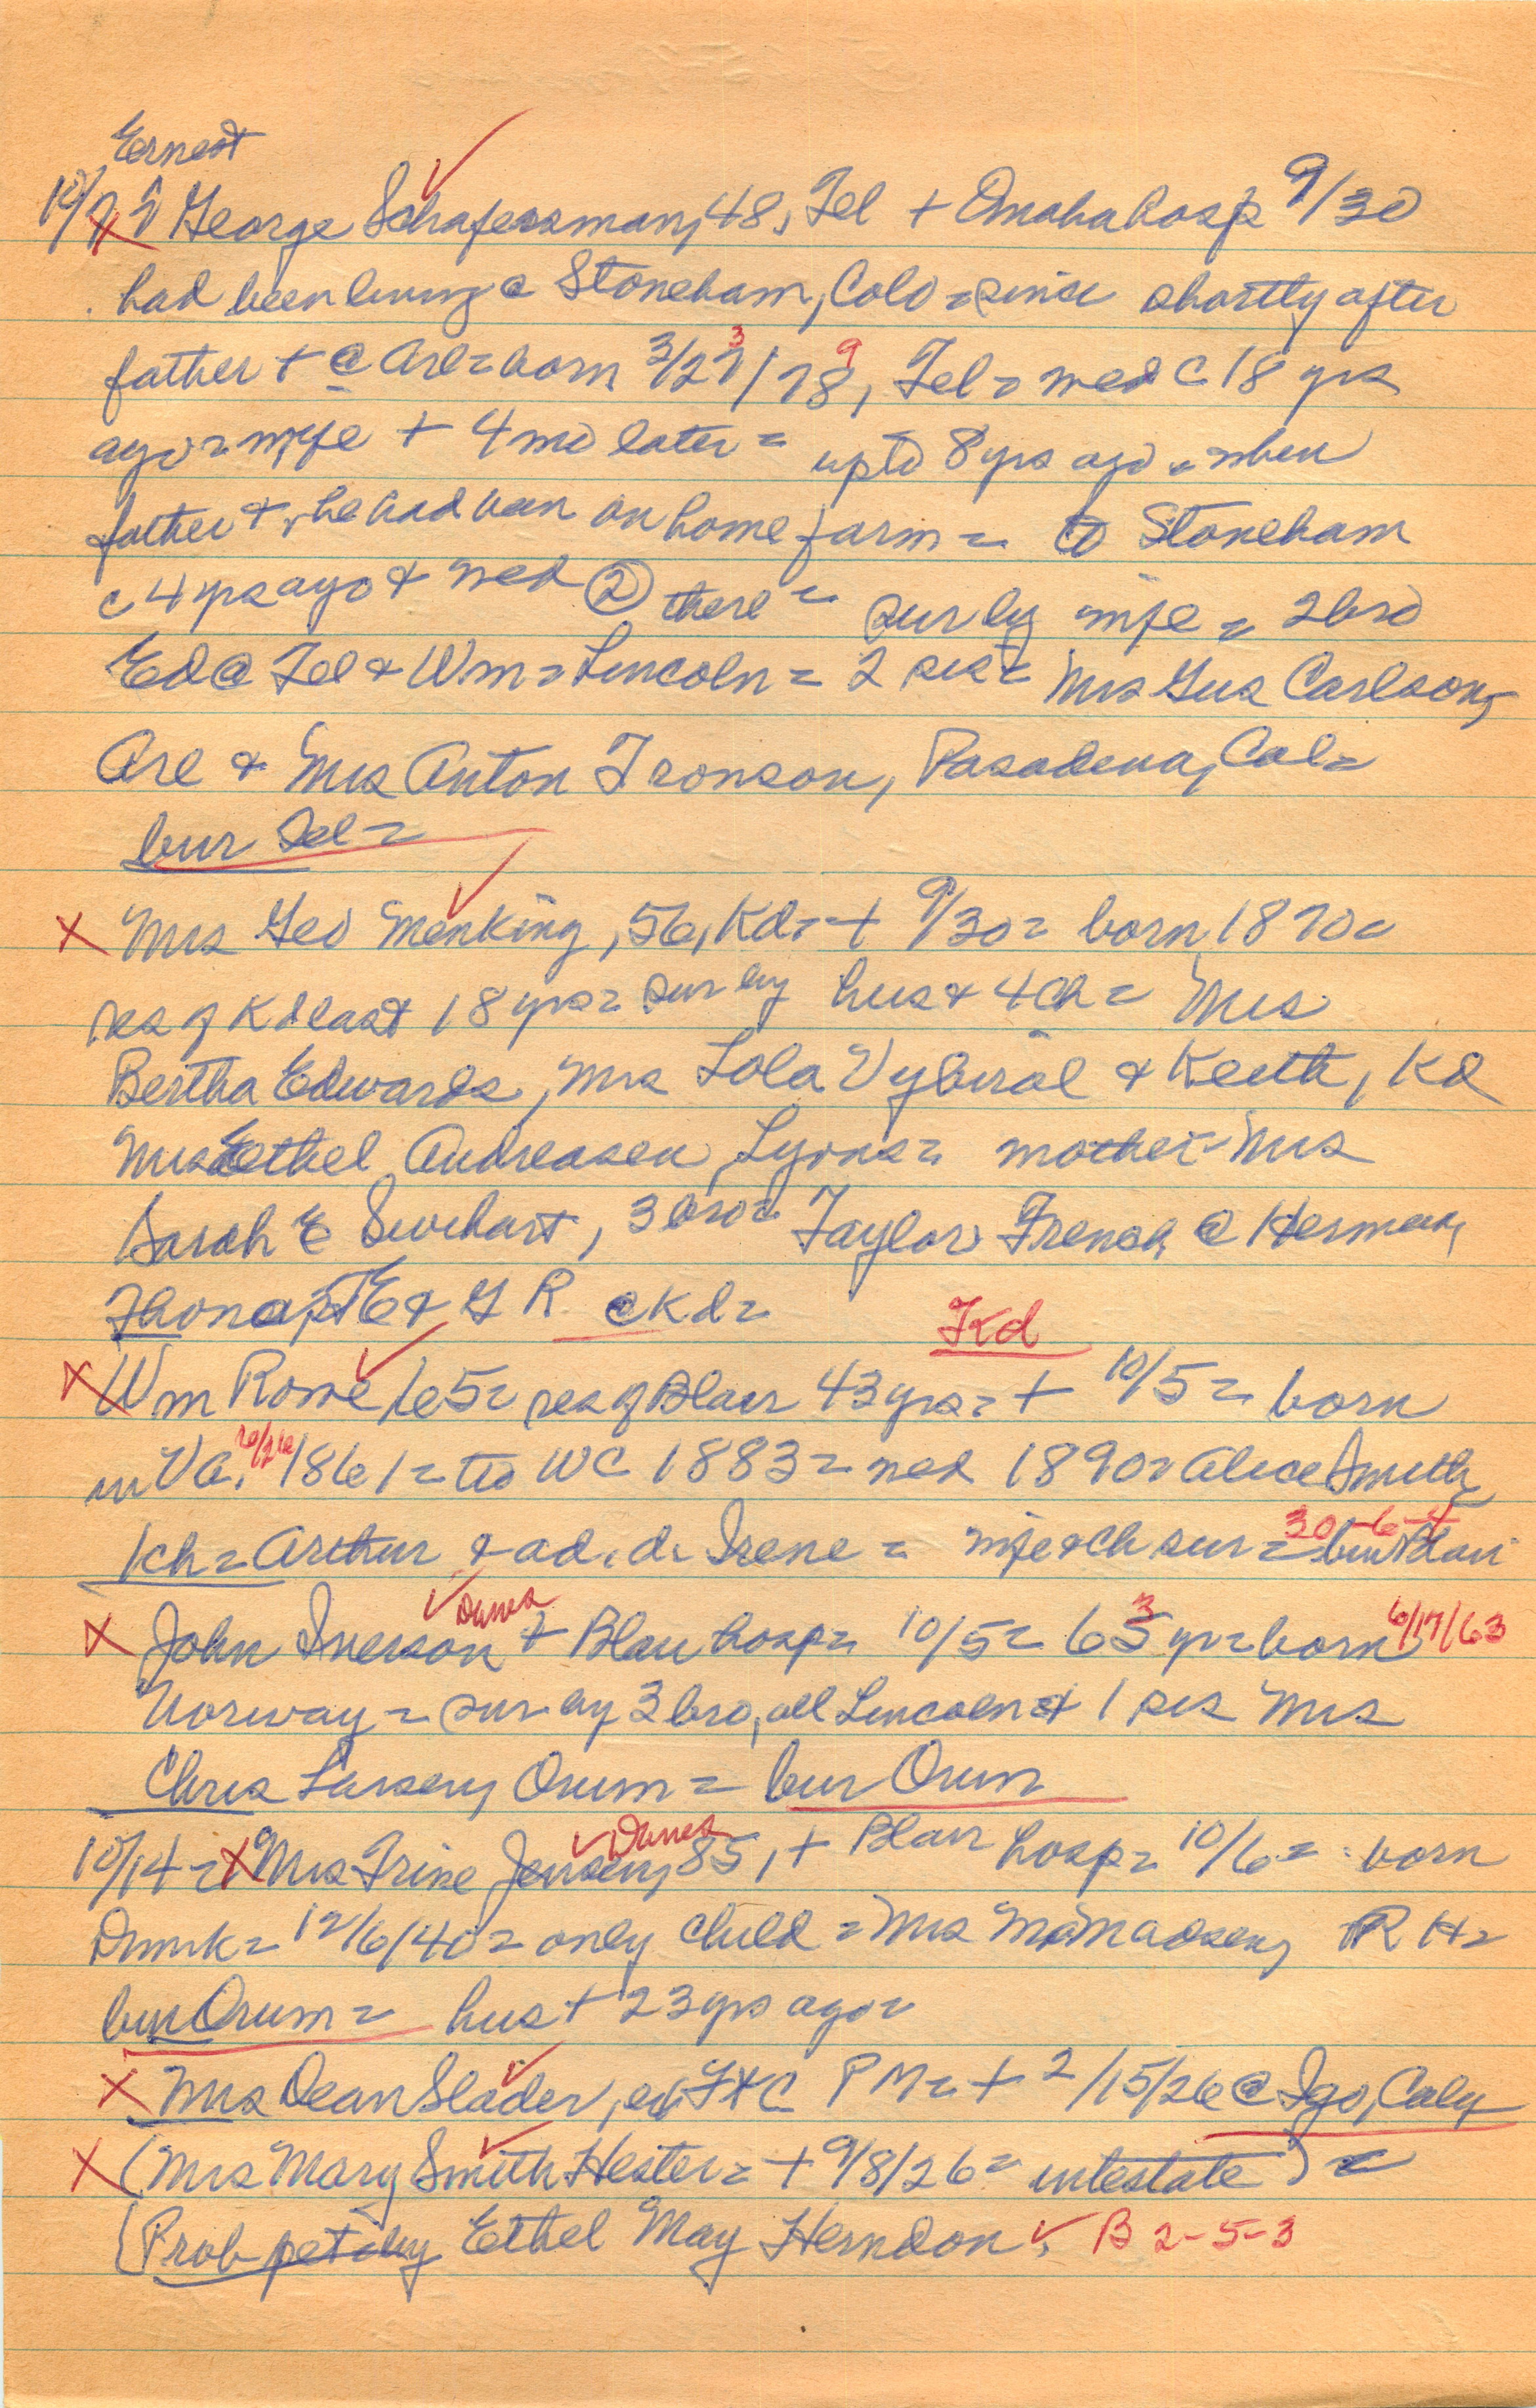 Ernest
10/7 X George Schafersman, 48, Tel + Omaha hosp 9/30
had been living @ Stoneham, Colo = since shortly after
father + @ Arl = born 3/27/78, Tel = med c 18 yrs
3 9
ago = wife + 4 mo later = up to 8 yrs ago = when
father +, he had been on home farm = to Stoneham
c 4 yrs ago & med ② there = sur by wife = 2 bro
Ed @ Tel & Wm = Lincoln = 2 sis = Mrs Gus Carlson,
Arl & Mrs Anton Tronson, Pasadena, Cal =
bur Tel =
X Mrs Geo Menking, 56, Kd = + 9/30 = born 1870 =
res of Kd last 18 yrs = sur by hus & 4 ch = Mrs
Bertha Edwards, Mrs Lola Vybiral & Keith, Kd
Mrs Ethel Andreasen, Lyons = mother = Mrs
Sarah E Swihart, 3 bro = Taylor French @ Herman,
E & G R @ Kd =
Kd
X Wm Rowe 65 = res of Blair 43 yrs = + 10/5 = born
in Va. 1861 = to WC 1883 = med 1890 = Alice Smith,
1 ch = Arthur & ad. d. Irene = wife & ch sur = bur Blair
30-6-4
X John Iverson + Blair hosp = 10/5 = 65 yr = born 6/17/63
Danes 3
Norway = sur by 3 bro, all Lincoln & 1 sis Mrs
Chris Larsen, Orum = bur Orum
10/14 = X Mrs Trine Jensen, 85, + Blair hosp = 10/6 = born
Danes
Dnmk = 12/6/40 = only child = Mrs Madsen, R H =
bur Orum = hus + 23 yrs ago =
X Mrs Dean Slader, ex Ft C P M = + 2/15/26 @ Igo, Caly
X (Mrs Mary Smith Hester = + 9/8/26 = intestate) =
(Prob pet by Ethel May Herndon, B 2-5-3